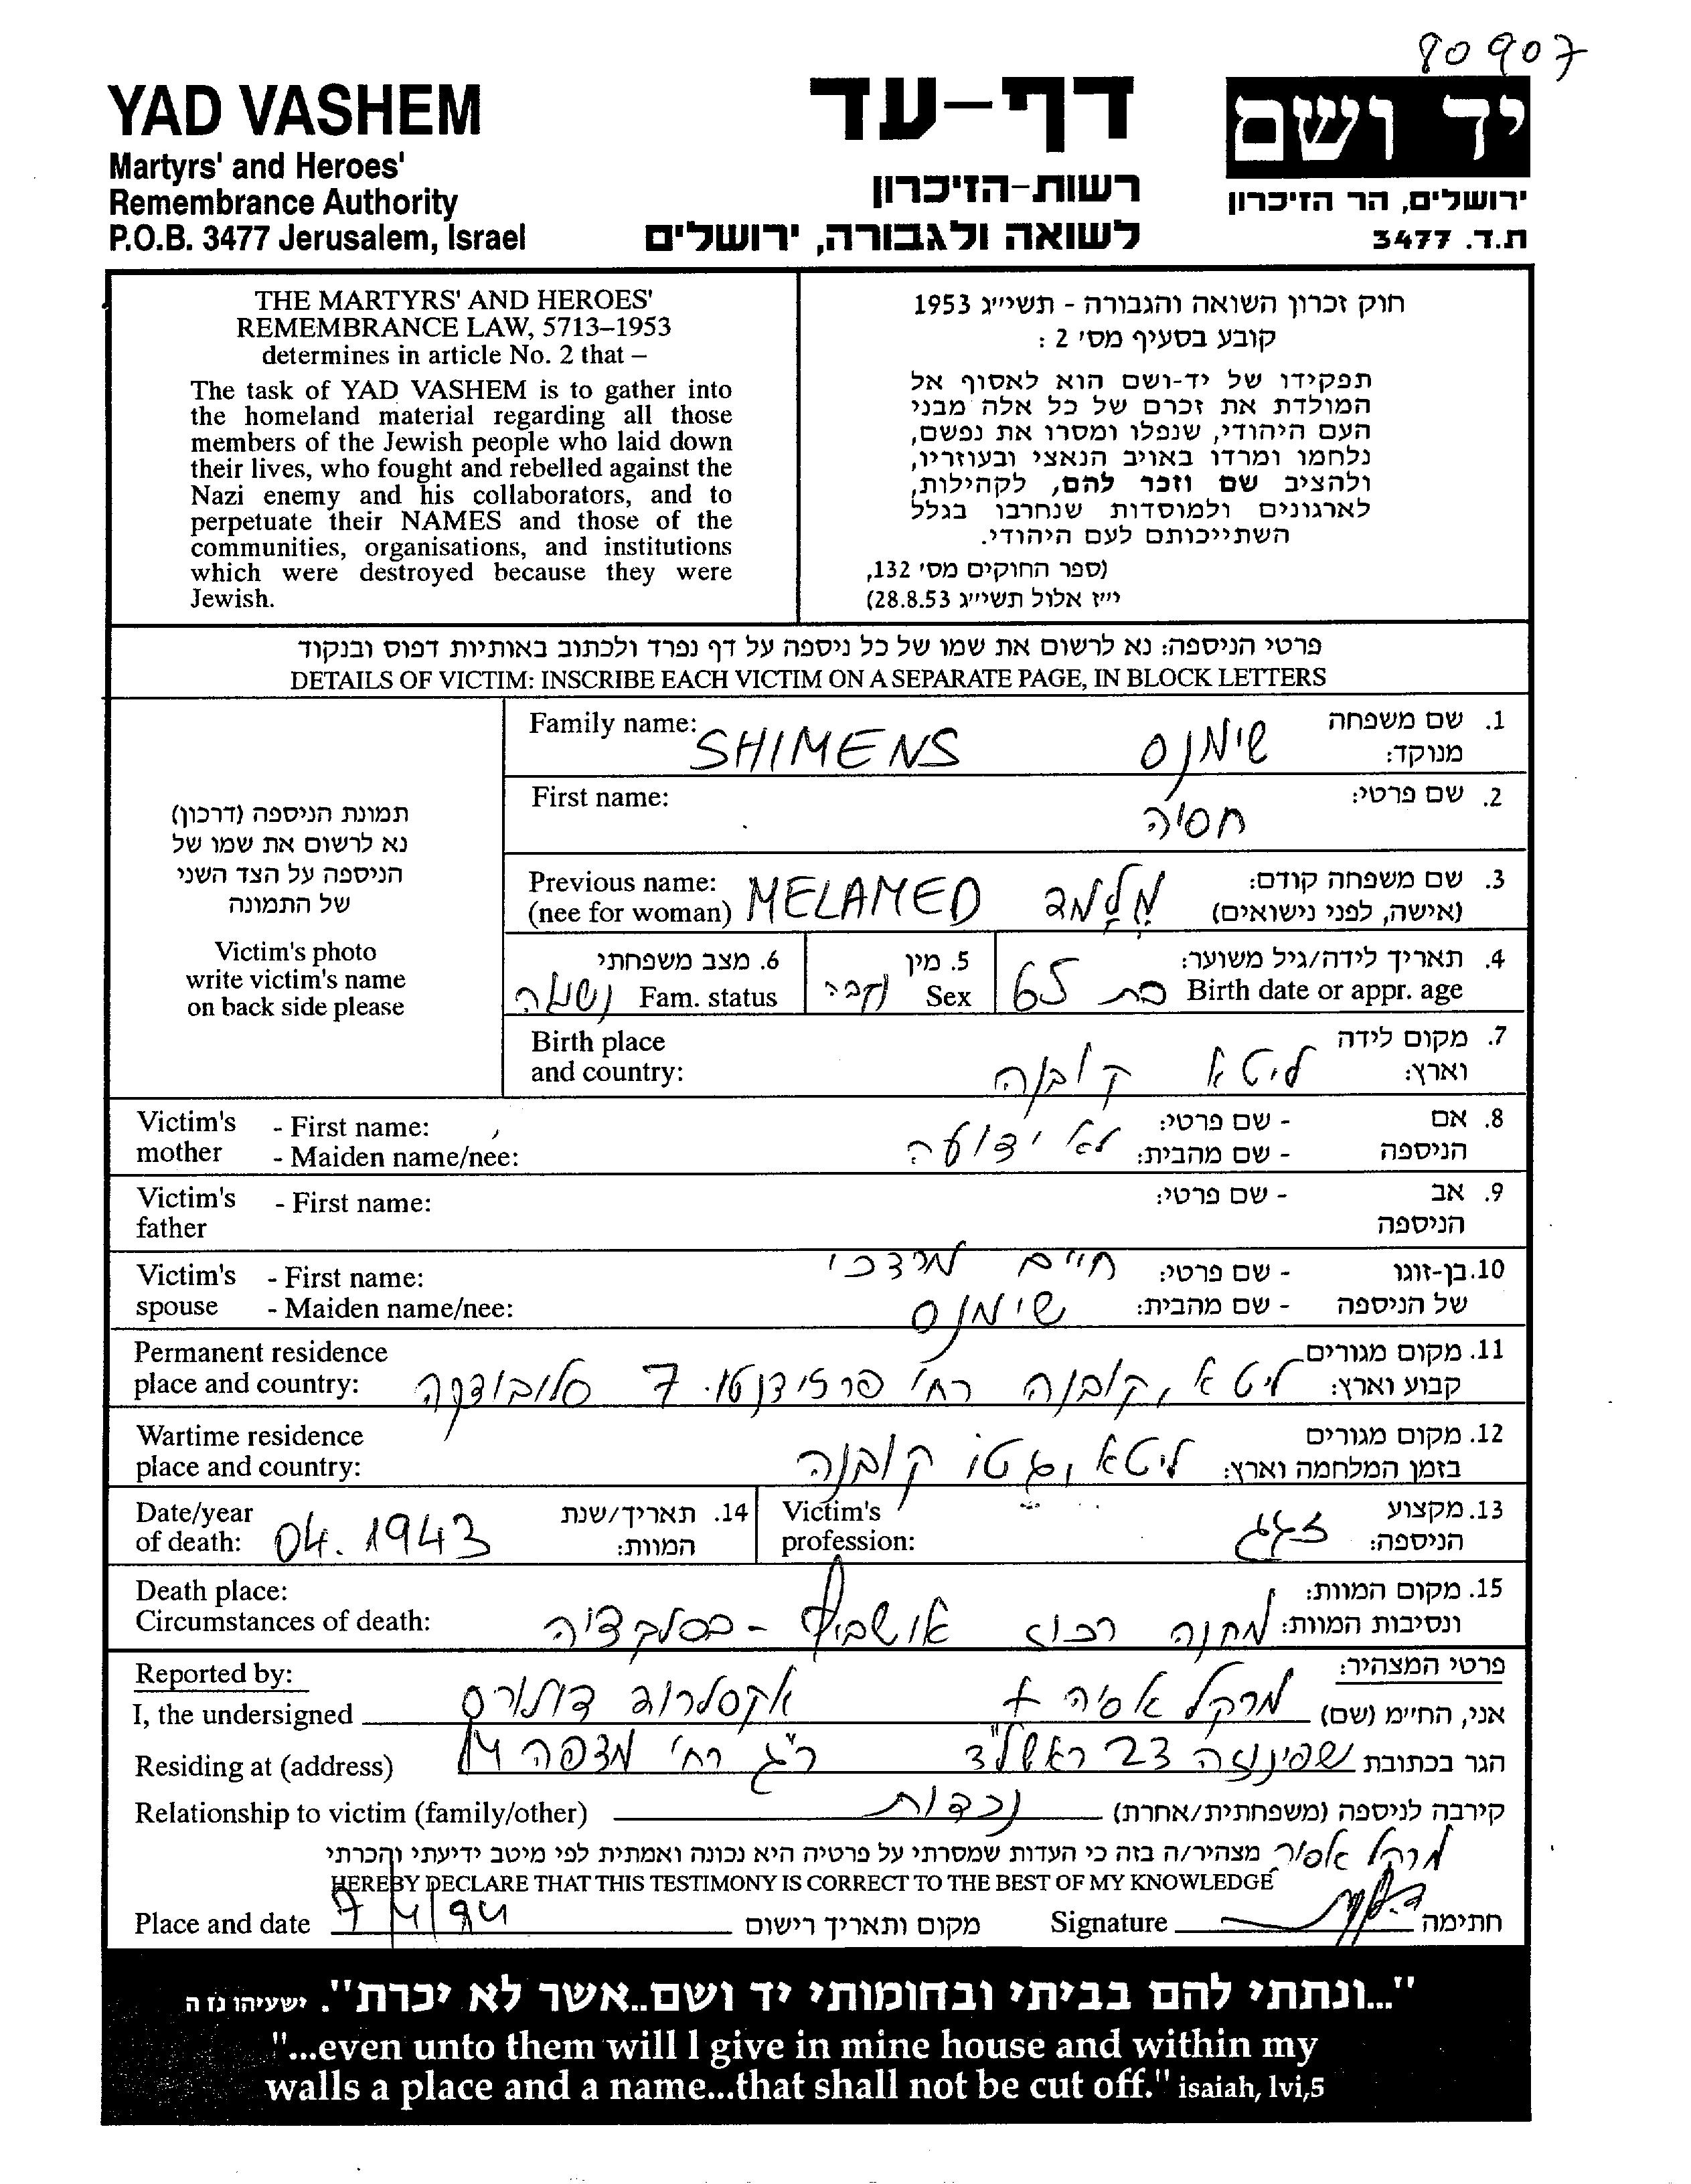 80907
YAD VASHEM
Martyrs' and Heroes'
Remembrance Authority
P.O.B. 3477 Jerusalem, Israel
דף-עד
רשות-הזיכרון
לשואה ולגבורה, ירושלים
יד ושם
ירושלים, הר הזיכרון
ת.ד. 3477
THE MARTYRS' AND HEROES'
REMEMBRANCE LAW, 5713–1953
determines in article No. 2 that –
The task of YAD VASHEM is to gather into
the homeland material regarding all those
members of the Jewish people who laid down
their lives, who fought and rebelled against the
Nazi enemy and his collaborators, and to
perpetuate their NAMES and those of the
communities, organisations, and institutions
which were destroyed because they were
Jewish.
חוק זכרון השואה והגבורה - תשי״ג 1953
קובע בסעיף מס' 2 :
תפקידו של יד-ושם הוא לאסוף אל
המולדת את זכרם של כל אלה מבני
העם היהודי, שנפלו ומסרו את נפשם,
נלחמו ומרדו באויב הנאצי ובעוזריו,
ולהציב שם וזכר להם, לקהילות,
לארגונים ולמוסדות שנחרבו בגלל
השתייכותם לעם היהודי.
(ספר החוקים מס' 132,
י״ז אלול תשי״ג 28.8.53)
פרטי הניספה: נא לרשום את שמו של כל ניספה על דף נפרד ולכתוב באותיות דפוס ובנקוד
DETAILS OF VICTIM: INSCRIBE EACH VICTIM ON A SEPARATE PAGE, IN BLOCK LETTERS
תמונת הניספה (דרכון)
נא לרשום את שמו של
הניספה על הצד השני
של התמונה
Victim's photo
write victim's name
on back side please
Family name: SHIMENS שימנס 1. שם משפחה
מנוקד:
First name: חסיה 2. שם פרטי:
Previous name: MELAMED מלמד 3. שם משפחה קודם:
(nee for woman) (אישה, לפני נישואים)
4. תאריך לידה/גיל משוער: 5. מין 6. מצב משפחתי
Birth date or appr. age בת 65 Sex נקבה Fam. status נשואה
Birth place 7. מקום לידה
and country: ליטא קובנה וארץ:
Victim's - First name: - שם פרטי: 8. אם
mother - Maiden name/nee: לא ידועה - שם מהבית: הניספה
Victim's - First name: - שם פרטי: 9. אב
father הניספה
Victim's - First name: חיים מרדכי - שם פרטי: 10.בן-זוגו
spouse - Maiden name/nee: שימנס - שם מהבית: של הניספה
Permanent residence 11. מקום מגורים
place and country: ליטא, קובנה רח' פרזידנטו 7 סלובודקה קבוע וארץ:
Wartime residence 12. מקום מגורים
place and country: ליטא, גטו קובנה בזמן המלחמה וארץ:
Date/year 14. תאריך/שנת Victim's 13. מקצוע
of death: 04.1943 המוות: profession: זגג הניספה:
Death place: 15. מקום המוות:
Circumstances of death: מחנה רכוז אושביץ - בסלקציה ונסיבות המוות:
Reported by: פרטי המצהיר:
I, the undersigned מרקל אסיה + אקסלרוד דולורס אני, החי״מ (שם)
Residing at (address) שפינוזה 23 ראשל"צ ר"ג רח' מצפה 14 הגר בכתובת
Relationship to victim (family/other) נכדות קירבה לניספה (משפחתית/אחרת)
מרקל אסיה מצהיר/ה בזה כי העדות שמסרתי על פרטיה היא נכונה ואמתית לפי מיטב ידיעתי והכרתי
HEREBY DECLARE THAT THIS TESTIMONY IS CORRECT TO THE BEST OF MY KNOWLEDGE
Place and date 7/4/94 מקום ותאריך רישום Signature חתימה
"...ונתתי להם בביתי ובחומותי יד ושם..אשר לא יכרת". ישעיהו נז ה
"...even unto them will I give in mine house and within my
walls a place and a name...that shall not be cut off." isaiah, lvi,5